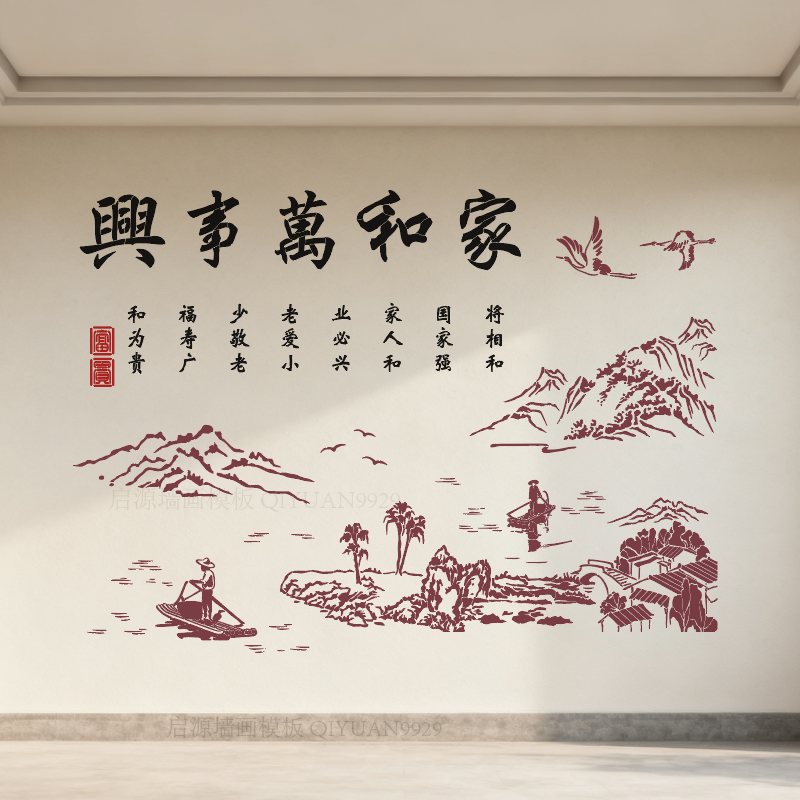 家和萬事興
将相和
国家强
家人和
业必兴
老爱小
少敬老
福寿广
和为贵
富
貴
启源墙画模板 QIYUAN9929
启源墙画模板 QIYUAN9929